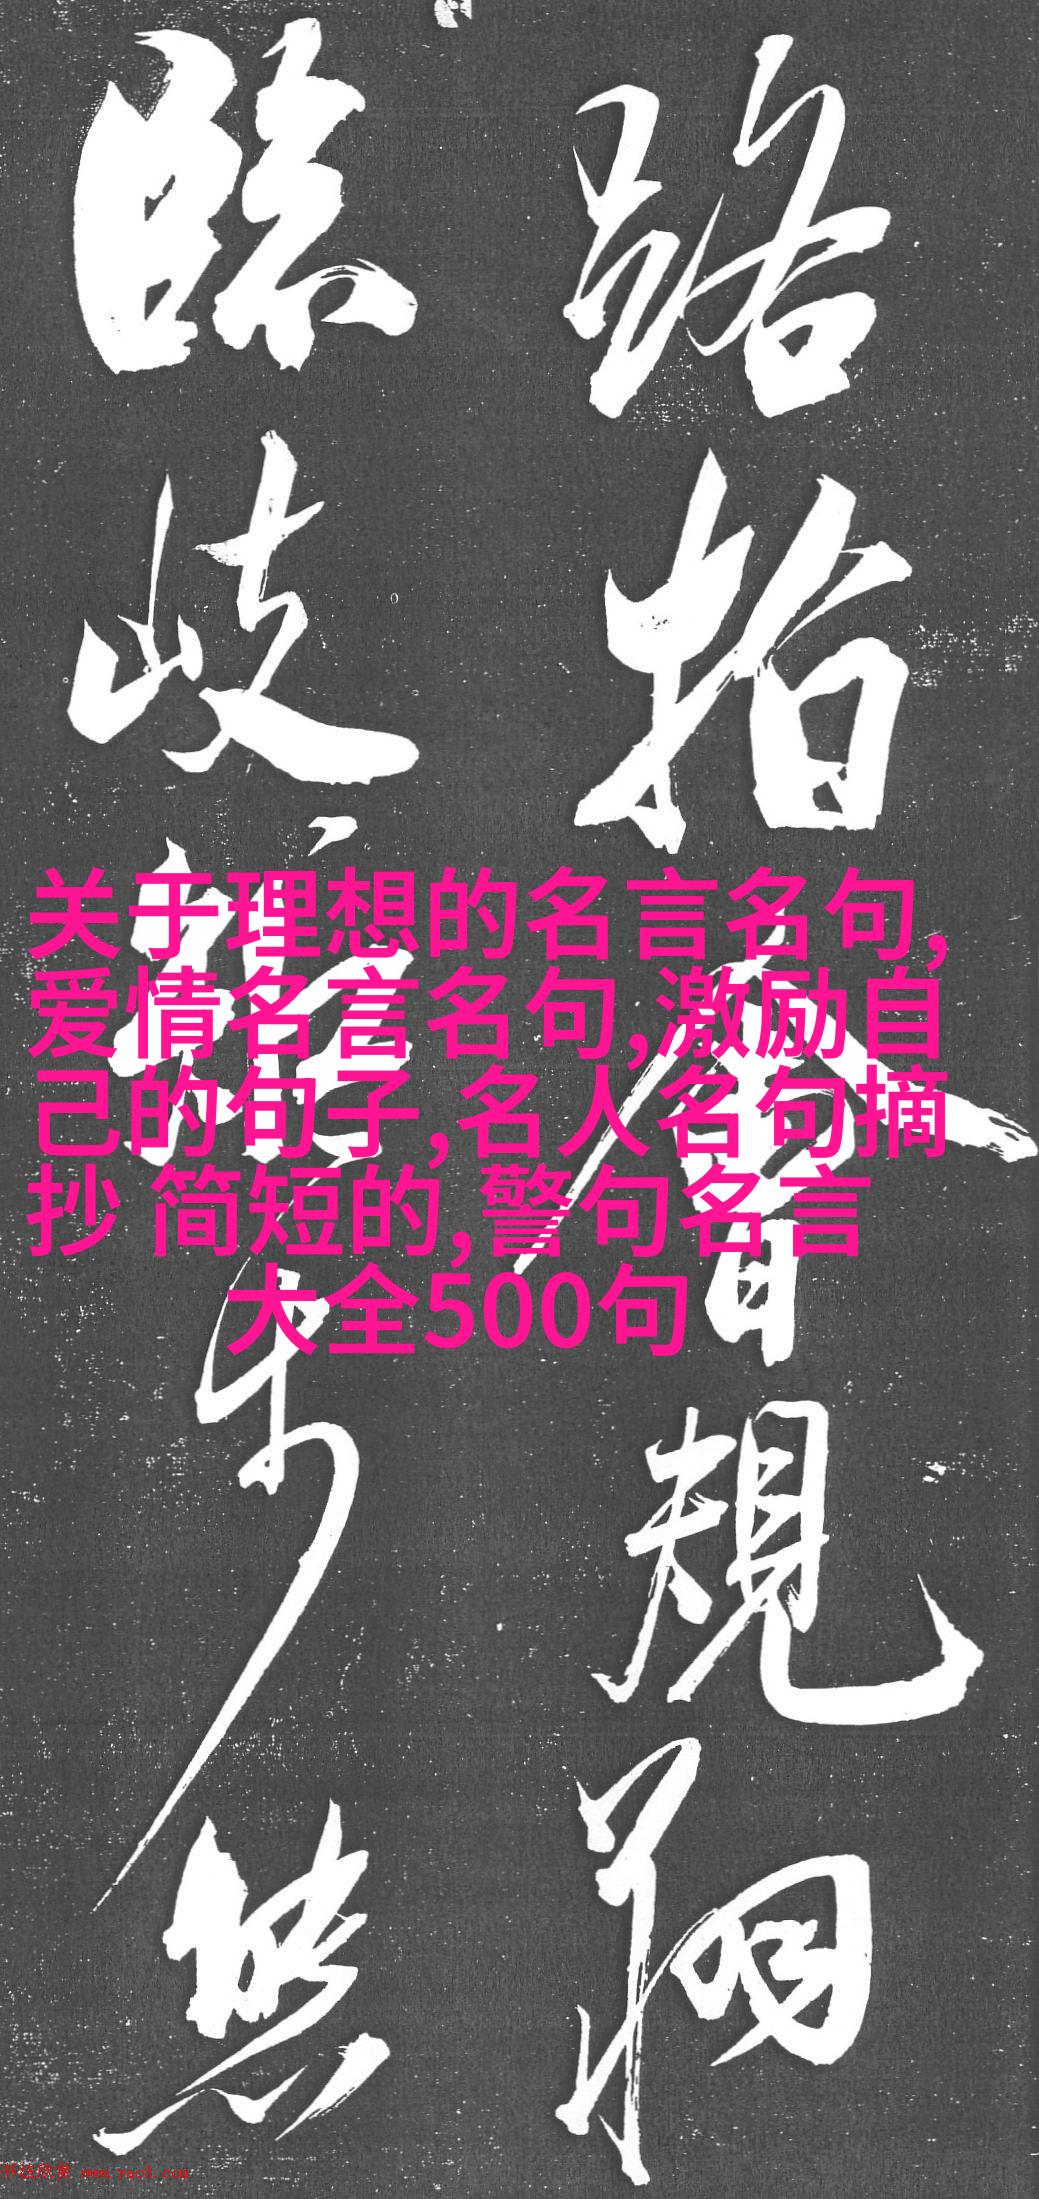 路指會規翔
臨歧
步無
关于理想的名言名句,
爱情名言名句,激励自
己的句子,名人名句摘
抄 简短的,警句名言
大全500句
书法欣赏 www.yac8.com